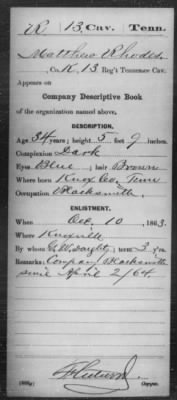 R 13 Cav. Tenn.
Matthew Rhodes
Co. K, 13 Reg't Tennessee Cav.
Appears on
Company Descriptive Book
of the organization named above.
DESCRIPTION.
Age 34 years; height 5 feet 9 inches.
Complexion Dark
Eyes Blue; hair Brown
Where born Knox Co, Tenn
Occupation Blacksmith
ENLISTMENT.
When Dec. 10, 1863.
Where Knoxville
By whom G. W. Doughty; term 3 y'rs.
Remarks: Company Blacksmith
since April 2/64
Copyist.